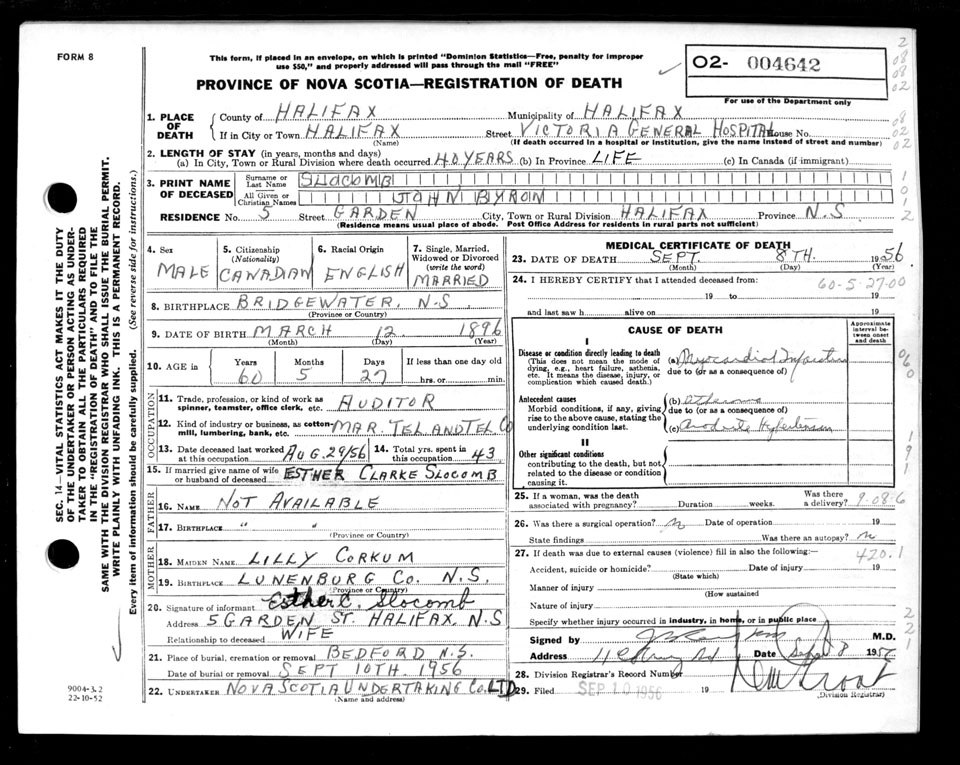 FORM 8
This form, if placed in an envelope, on which is printed "Dominion Statistics—Free, penalty for improper
use $50," and properly addressed will pass through the mail "FREE"
PROVINCE OF NOVA SCOTIA—REGISTRATION OF DEATH
02- 004642
For use of the Department only
1. PLACE OF DEATH
County of HALIFAX Municipality of HALIFAX
If in City or Town HALIFAX Street VICTORIA GENERAL HOSPITAL House No.
(Name) (If death occurred in a hospital or institution, give the name instead of street and number)
2. LENGTH OF STAY (in years, months and days)
(a) In City, Town or Rural Division where death occurred 40 YEARS (b) In Province LIFE (c) In Canada (if immigrant)
3. PRINT NAME OF DECEASED
Surname or Last Name SLOCOMB
All Given or Christian Names JOHN BYRON
RESIDENCE No. 5 Street GARDEN City, Town or Rural Division HALIFAX Province N.S
(Residence means usual place of abode. Post Office Address for residents in rural parts not sufficient)
4. Sex MALE
5. Citizenship (Nationality) CANADIAN
6. Racial Origin ENGLISH
7. Single, Married, Widowed or Divorced (write the word) MARRIED
8. BIRTHPLACE BRIDGEWATER, N.S.
(Province or Country)
9. DATE OF BIRTH MARCH 12 1896
(Month) (Day) (Year)
10. AGE in Years 60 Months 5 Days 27 If less than one day old hrs. or min.
OCCUPATION
11. Trade, profession, or kind of work as
spinner, teamster, office clerk, etc. AUDITOR
12. Kind of industry or business, as cotton-
mill, lumbering, bank, etc. MAR. TEL AND TEL CO
13. Date deceased last worked at this occupation AUG. 29/56 14. Total yrs. spent in this occupation 43
15. If married give name of wife
or husband of deceased ESTHER CLARKE SLOCOMB
FATHER
16. NAME NOT AVAILABLE
17. BIRTHPLACE " "
(Province or Country)
MOTHER
18. MAIDEN NAME LILLY CORKUM
19. BIRTHPLACE LUNENBURG CO. N.S.
(Province or Country)
20. Signature of informant Esther C. Slocomb
Address 5 GARDEN ST. HALIFAX, N.S
Relationship to deceased WIFE
21. Place of burial, cremation or removal BEDFORD N.S.
Date of burial or removal SEPT 10TH 1956
22. UNDERTAKER NOVA SCOTIA UNDERTAKING CO. LTD
(Name and address)
MEDICAL CERTIFICATE OF DEATH
23. DATE OF DEATH SEPT. 8TH. 1956
(Month) (Day) (Year)
24. I HEREBY CERTIFY that I attended deceased from:
60-5-27-00
19 to 19
and last saw h alive on 19
CAUSE OF DEATH
Approximate interval between onset and death
I
Disease or condition directly leading to death
(This does not mean the mode of
dying, e.g., heart failure, asthenia,
etc. It means the disease, injury, or
complication which caused death.)
(a) Myocardial Infarction
due to (or as a consequence of)
Antecedent causes
Morbid conditions, if any, giving
rise to the above cause, stating the
underlying condition last.
(b) Atheroma
due to (or as a consequence of)
(c) Hypertension
II
Other significant conditions
contributing to the death, but not
related to the disease or condition
causing it.
25. If a woman, was the death
associated with pregnancy? Duration weeks. Was there a delivery? 9-08-6
26. Was there a surgical operation? n Date of operation 19
State findings Was there an autopsy? n
27. If death was due to external causes (violence) fill in also the following: 420.1
Accident, suicide or homicide? Date of injury 19
(State which)
Manner of injury
(How sustained
Nature of injury
Specify whether injury occurred in industry, in home, or in public place
Signed by M.D.
Address Date Sept 8 1956
28. Division Registrar's Record Number
29. Filed SEP 10 1956 19
(Division Registrar)
SEC. 14—VITAL STATISTICS ACT MAKES IT THE DUTY
OF THE UNDERTAKER OR PERSON ACTING AS UNDER-
TAKER TO OBTAIN ALL THE PARTICULARS REQUIRED
IN THE "REGISTRATION OF DEATH" AND TO FILE THE
SAME WITH THE DIVISION REGISTRAR WHO SHALL ISSUE THE BURIAL PERMIT.
WRITE PLAINLY WITH UNFADING INK. THIS IS A PERMANENT RECORD.
Every item of information should be carefully supplied. (See reverse side for instructions.)
9004-3.2
22-10-52